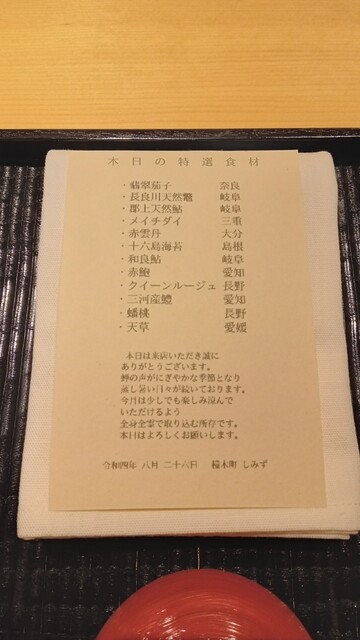 本日の特選食材
・翡翠茄子 奈良
・長良川天然鰻 岐阜
・郡上天然鮎 岐阜
・メイチダイ 三重
・赤雲丹 大分
・十六島海苔 島根
・和良鮎 岐阜
・赤鮑 愛知
・クイーンルージュ 長野
・三河産鱧 愛知
・蟠桃 長野
・天草 愛媛
本日は来店いただき誠に
ありがとうございます。
蝉の声がにぎやかな季節となり
蒸し暑い日々が続いております。
今月は少しでも楽しみ涼んで
いただけるよう
全身全霊で取り込む所存です。
本日はよろしくお願いします。
令和四年 八月 二十六日 橦木町 しみず